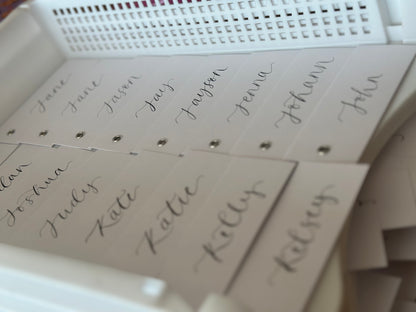 Jane
Jane
Jason
Jay
Jayson
Jenna
Johann
John
Joshua
Judy
Kate
Katie
Kelly
Kelsey